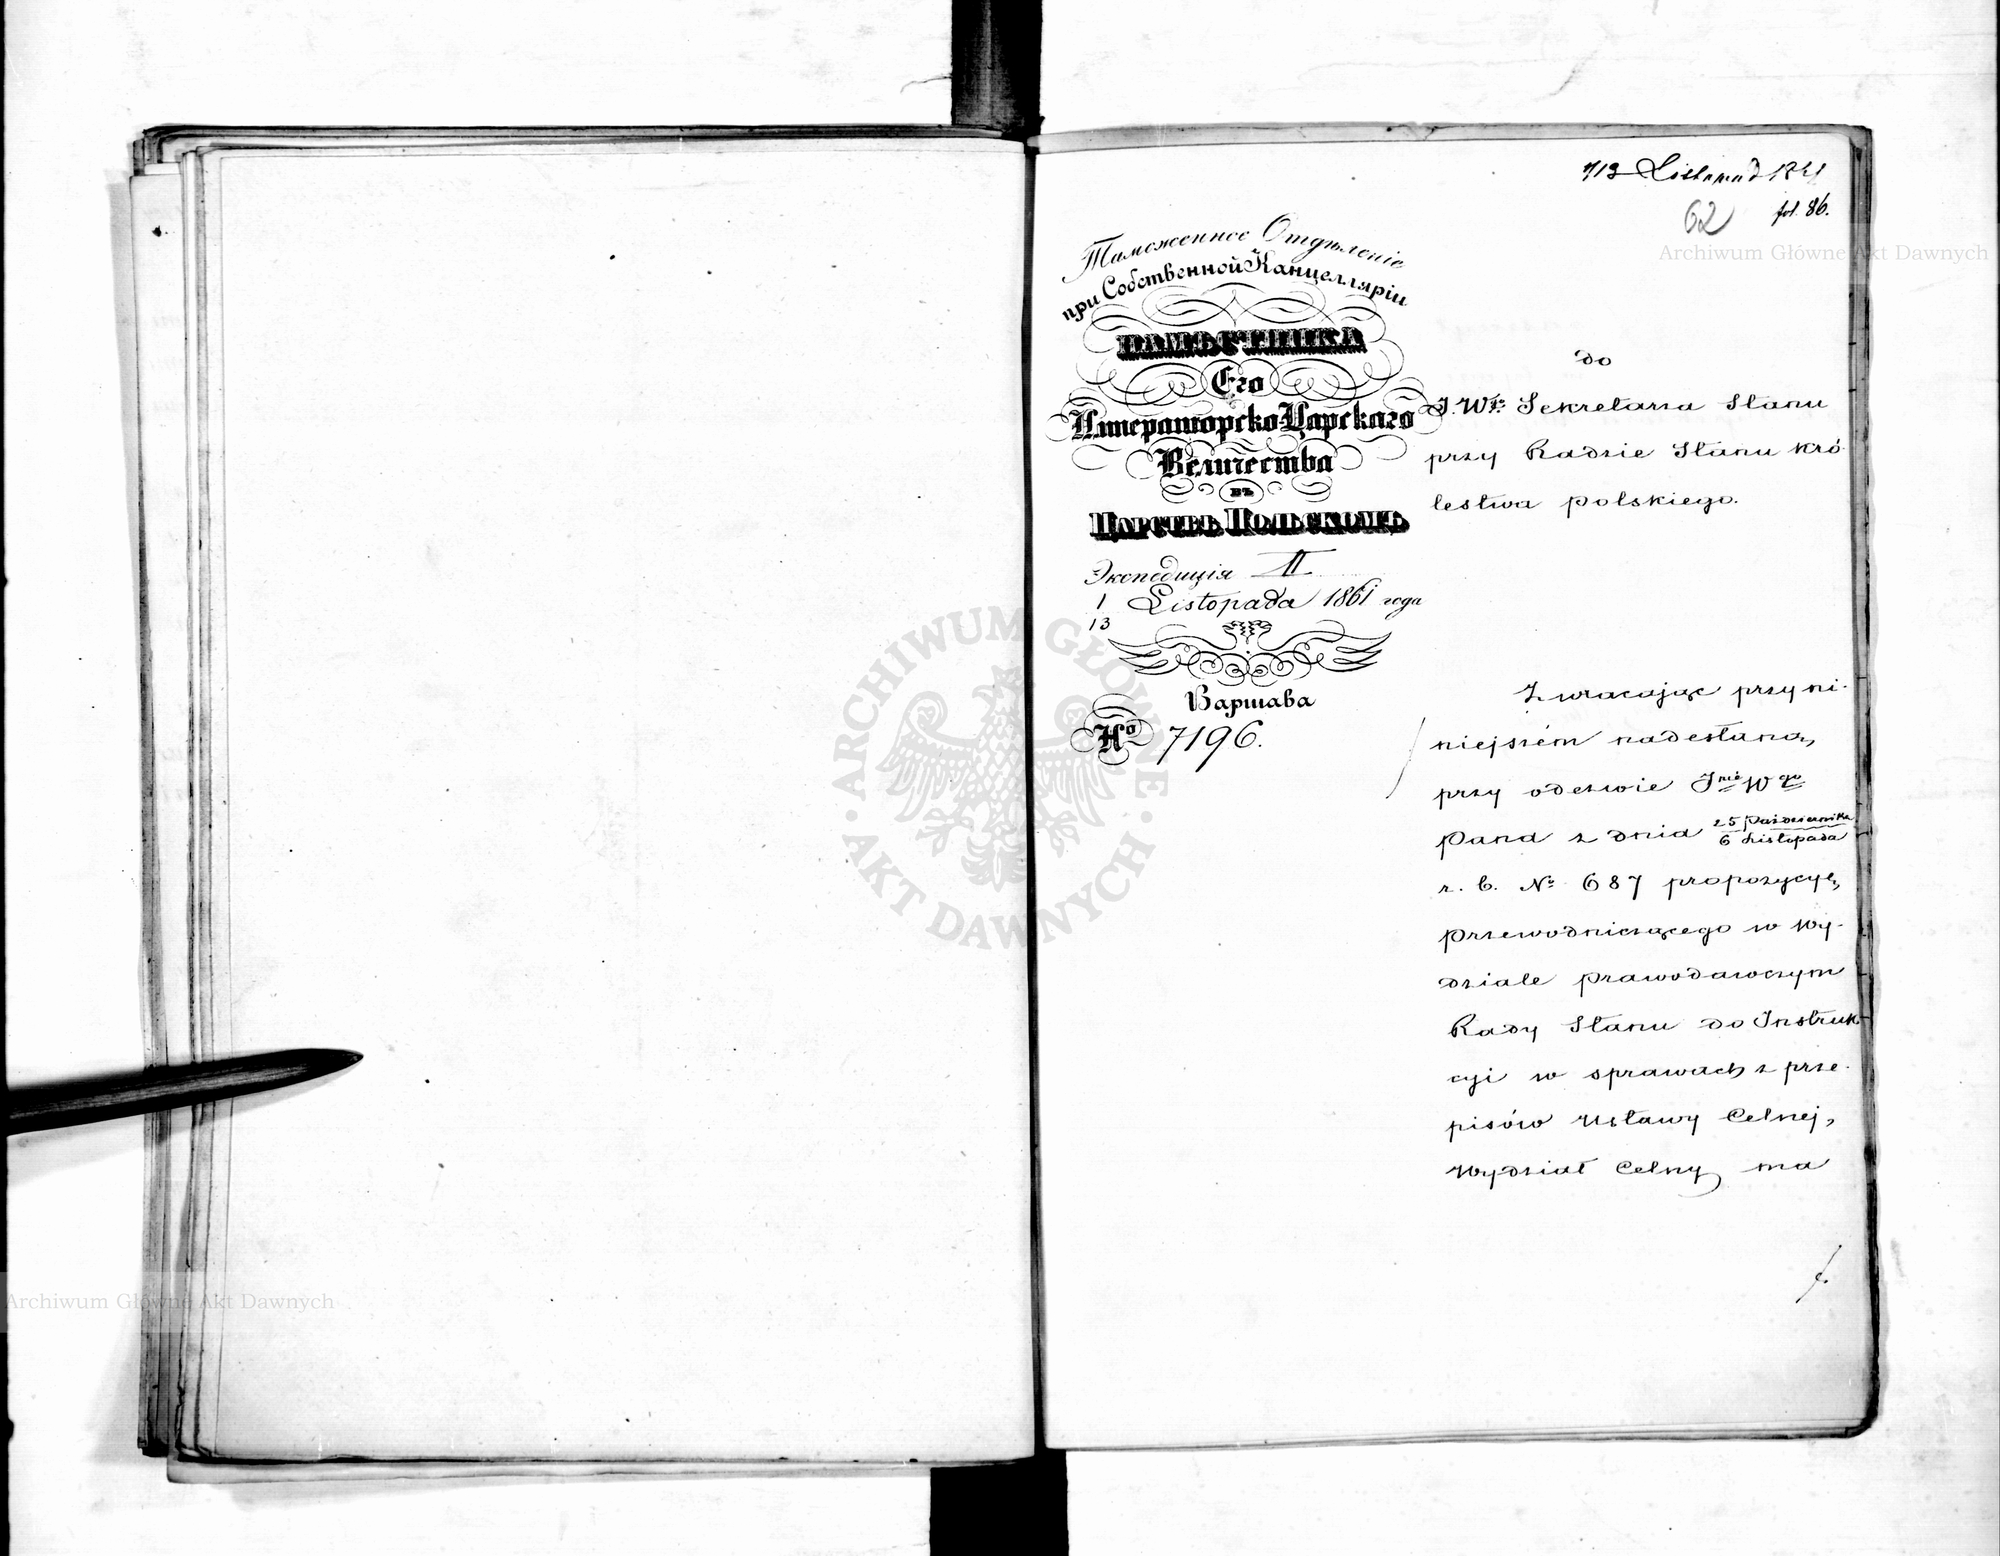 1/13 Listopad 1861
62 fol. 86.
Archiwum Główne Akt Dawnych
Таможенное Отдѣленіе
при Собственной Канцелляріи
НАМѢСТНИКА
Его
Императорско-Царскаго
Величества
въ
Царствѣ Польскомъ
Экспедиція II
1 Listopada 1861 года
13
Варшава
№ 7196.
do
J. W. Sekretarza Stanu
przy Radzie Stanu Kró-
lestwa Polskiego.
Zwracając przy ni-
niejszém nadesłaną,
przy odezwie
Pana z dnia 25 Października
6 Listopada
r. b. № 687 propozycyę,
przewodniczącego w Wy-
dziale prawodawczym
Rady Stanu do Instruk-
cyi w sprawach z prze-
pisów Ustawy Celnej,
Wydział Celny ma
ARCHIWUM GŁÓWNE
AKT DAWNYCH
Archiwum Główne Akt Dawnych